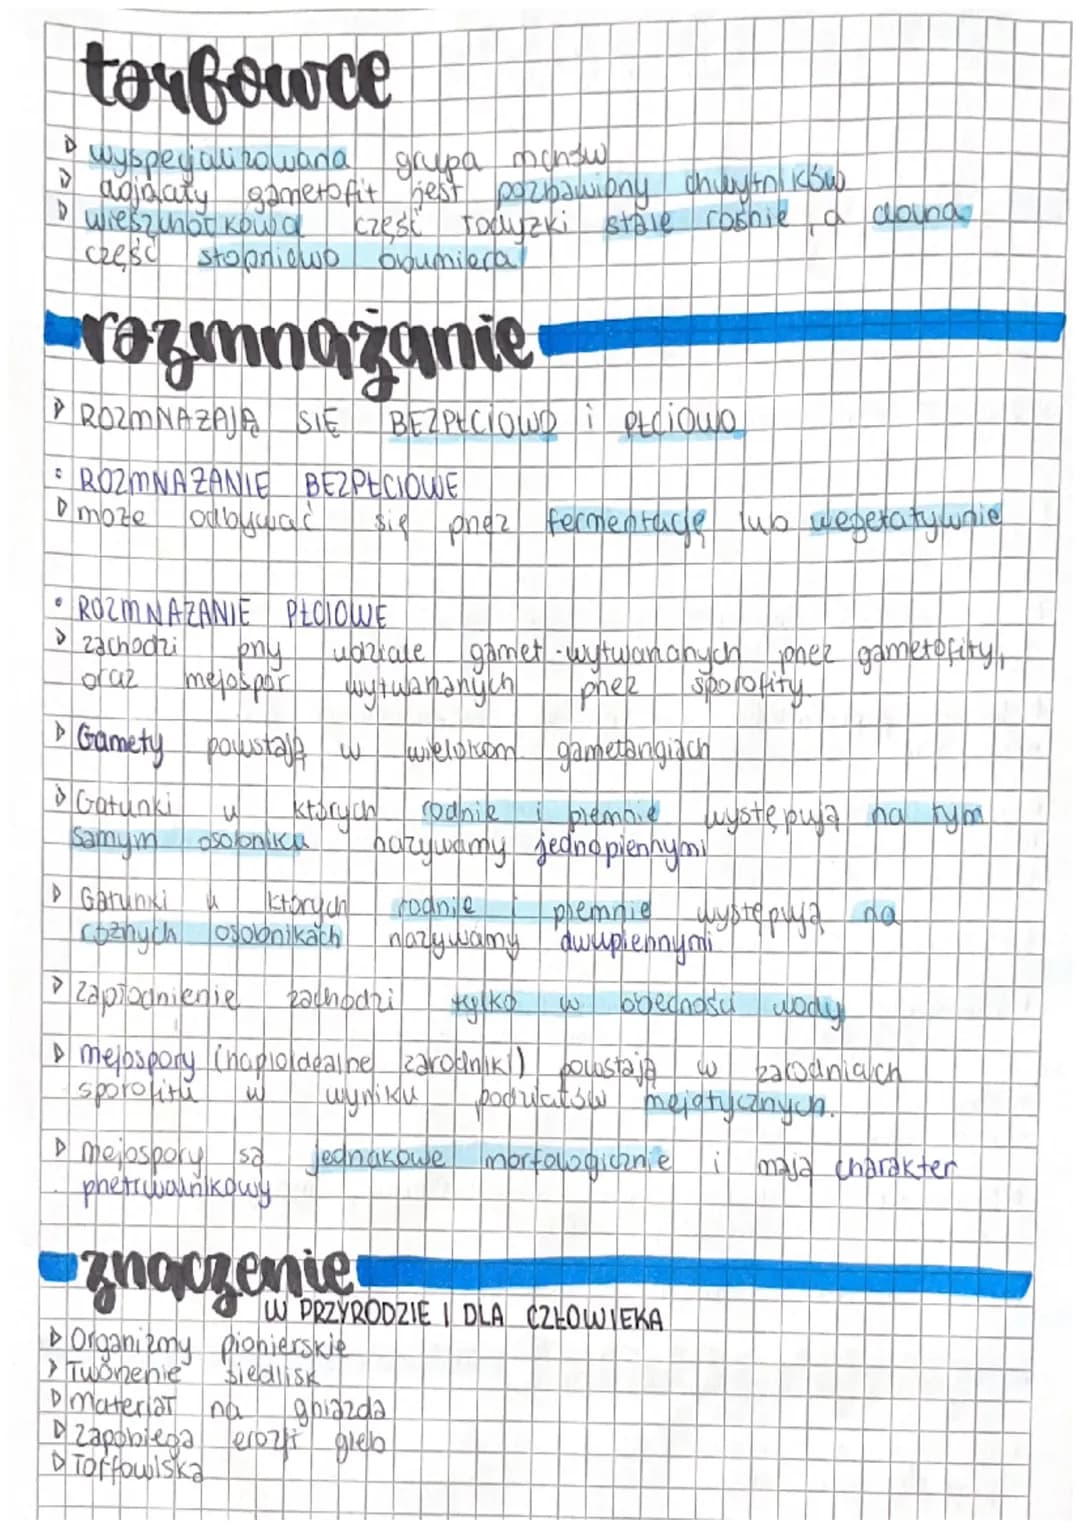 torfowce
▷ wyspecjalizowana grupa mchów
▷ dojrzały gametofit jest pozbawiony chwytników
▷ wierzchołkowa część łodyżki stale rośnie, a dolna
część stopniowo obumiera
rozmnażanie
▷ ROZMNAŻAJĄ SIĘ BEZPŁCIOWO i PŁCIOWO
• ROZMNAŻANIE BEZPŁCIOWE
▷ może odbywać się przez fermentację lub wegetatywnie
• ROZMNAŻANIE PŁCIOWE
▷ zachodzi przy udziale gamet - wytwarzanych przez gametofity,
oraz mejospor wytwarzanych przez sporofity.
▷ Gamety powstają w wielokom. gametangiach
▷ Gatunki u których rodnie i plemnie występują na tym
samym osobniku nazywamy jednopiennymi
▷ Gatunki u których rodnie i plemnie występują na
różnych osobnikach nazywamy dwupiennymi
▷ Zapłodnienie zachodzi tylko w obecności wody
▷ mejospory (haploidalne zarodniki) powstają w zarodniach
sporofitu w wyniku podziałów mejotycznych.
▷ mejospory są jednakowe morfologicznie i mają charakter
przetrwalnikowy
znaczenie
W PRZYRODZIE I DLA CZŁOWIEKA
▷ Organizmy pionierskie
▷ Tworzenie siedlisk
▷ Materiał na gniazda
▷ Zapobiega erozji gleb
▷ Torfowiska